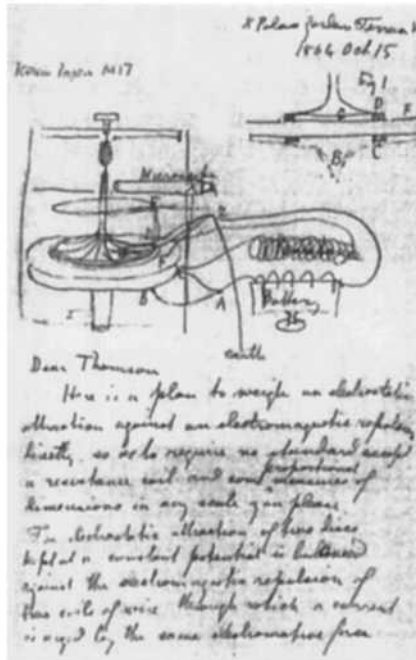 8 Palace Gardens Terrace W
1864 Oct 15
Kelvin Papers M17
Fig 1
Microscope
D
P
C
B
A
Battery
earth
Dear Thomson
Here is a plan to weigh an electrostatic
attraction against an electromagnetic repulsion
directly, so as to require no standard except
a resistance coil and some proportional measures of
dimensions in any scale you please.
The electrostatic attraction of two discs
kept at a constant potential is balanced
against the electromagnetic repulsion of
two coils of wire through which a current
is urged by the same electromotive force